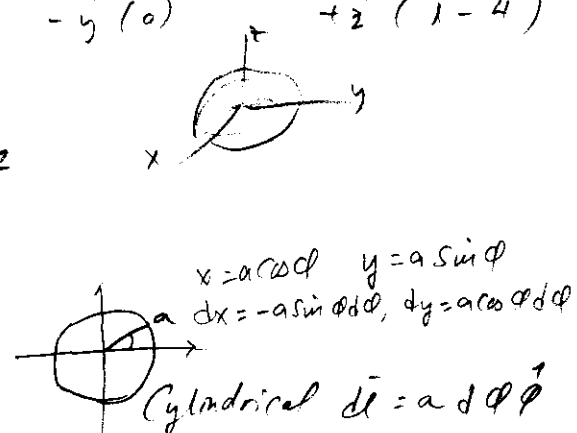 - y (0) + z ( 1 - 4 )
z
y
x
x = a cos φ y = a sin φ
a dx = -a sin φ dφ, dy = a cos φ dφ
Cylindrical dl̄ = a d φ φ̂